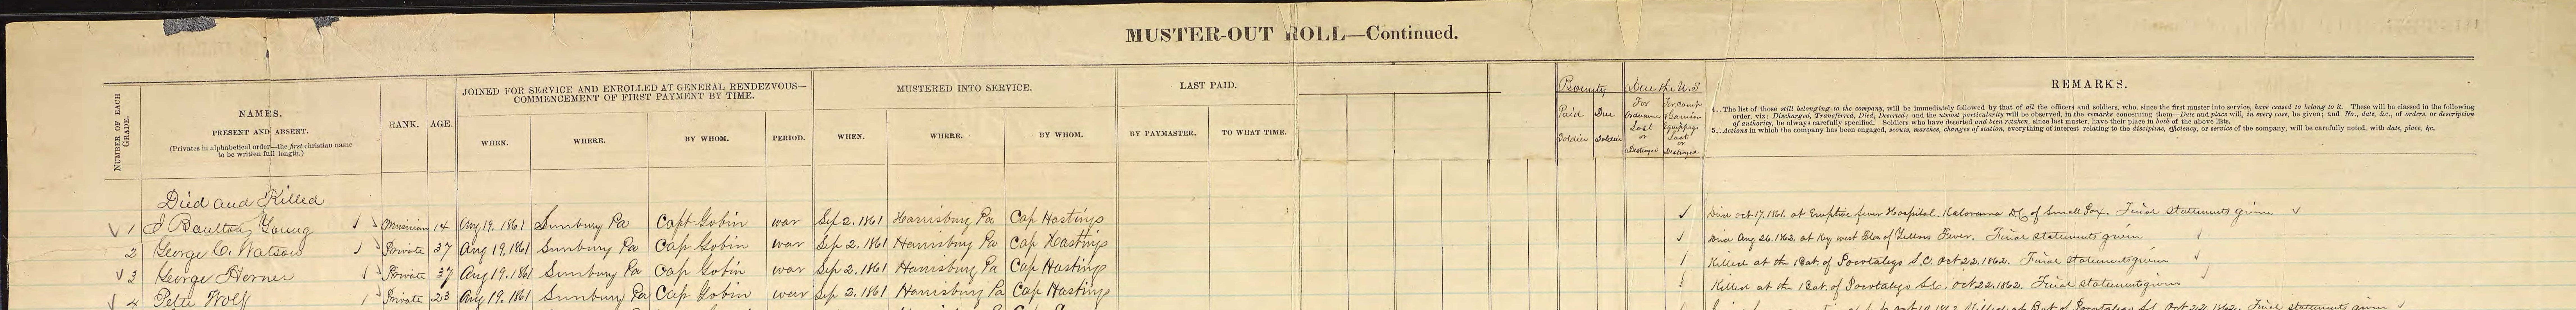 MUSTER-OUT ROLL—Continued.
NUMBER OF EACH GRADE.
NAMES.
PRESENT AND ABSENT.
(Privates in alphabetical order—the first christian name
to be written full length.)
RANK.
AGE.
JOINED FOR SERVICE AND ENROLLED AT GENERAL RENDEZVOUS—
COMMENCEMENT OF FIRST PAYMENT BY TIME.
WHEN. WHERE. BY WHOM. PERIOD.
MUSTERED INTO SERVICE.
WHEN. WHERE. BY WHOM.
LAST PAID.
BY PAYMASTER. TO WHAT TIME.
Bounty
Paid Soldier
Due Soldier
Due the U.S
For Ordnance Lost or Destroyed
For Camp & Garrison Equippage Lost or Destroyed
REMARKS.
4..The list of those still belonging to the company, will be immediately followed by that of all the officers and soldiers, who, since the first muster into service, have ceased to belong to it. These will be classed in the following
order, viz: Discharged, Transferred, Died, Deserted; and the utmost particularity will be observed, in the remarks concerning them—Date and place will, in every case, be given; and No., date, &c., of orders, or description
of authority, be always carefully specified. Soldiers who have deserted and been retaken, since last muster, have their place in both of the above lists.
5..Actions in which the company has been engaged, scouts, marches, changes of station, everything of interest relating to the discipline, efficiency, or service of the company, will be carefully noted, with date, place, &c.
Died and Killed
1 J Boulton Young Musician 14 Aug 19. 1861 Sunbury Pa Capt Gobin war Sep 2. 1861 Harrisburg Pa Cap Hastings Died Oct 17. 1861. at Eruptive fever Hospital. Kalorama D.C. of Small Pox. Final statements given
2 George C. Watson Private 37 Aug 19. 1861 Sunbury Pa Cap Gobin war Sep 2. 1861 Harrisburg Pa Cap Hastings Died Aug 26. 1862. at Key west Flo. of Yellow Fever. Final statements given
3 George Horner Private 37 Aug 19. 1861 Sunbury Pa Cap Gobin war Sep 2. 1861 Harrisburg Pa Cap Hastings Killed at the Bat. of Pocotaligo S.C. Oct 22. 1862. Final statements given
4 Peter Wolf Private 23 Aug 19. 1861 Sunbury Pa Cap Gobin war Sep 2. 1861 Harrisburg Pa Cap Hastings Killed at the Bat. of Pocotaligo S.C. Oct 22. 1862. Final statements given
Killed at Bat of Pocotaligo S.C. Oct 22. 1862. Final statements given